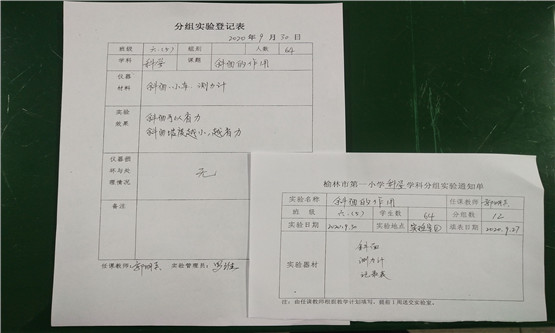 分组实验登记表
2020年9月30日
班级 六.(5) 组别 人数 64
学科 科学 课题 斜面的作用
仪器材料 斜面、小车、测力计
实验效果 斜面可以省力
斜面坡度越小,越省力
仪器损坏与处理情况 无
备注
任课教师: 实验管理员:
榆林市第一小学科学学科分组实验通知单
实验名称 斜面的作用 任课教师
班级 六.(5) 学生数 64 分组数 12
实验日期 2020.9.30 实验地点 实验室 填表日期 2020.9.27
实验器材 斜面
测力计
记录表
注:由任课教师根据教学计划填写,提前1周送交实验室。